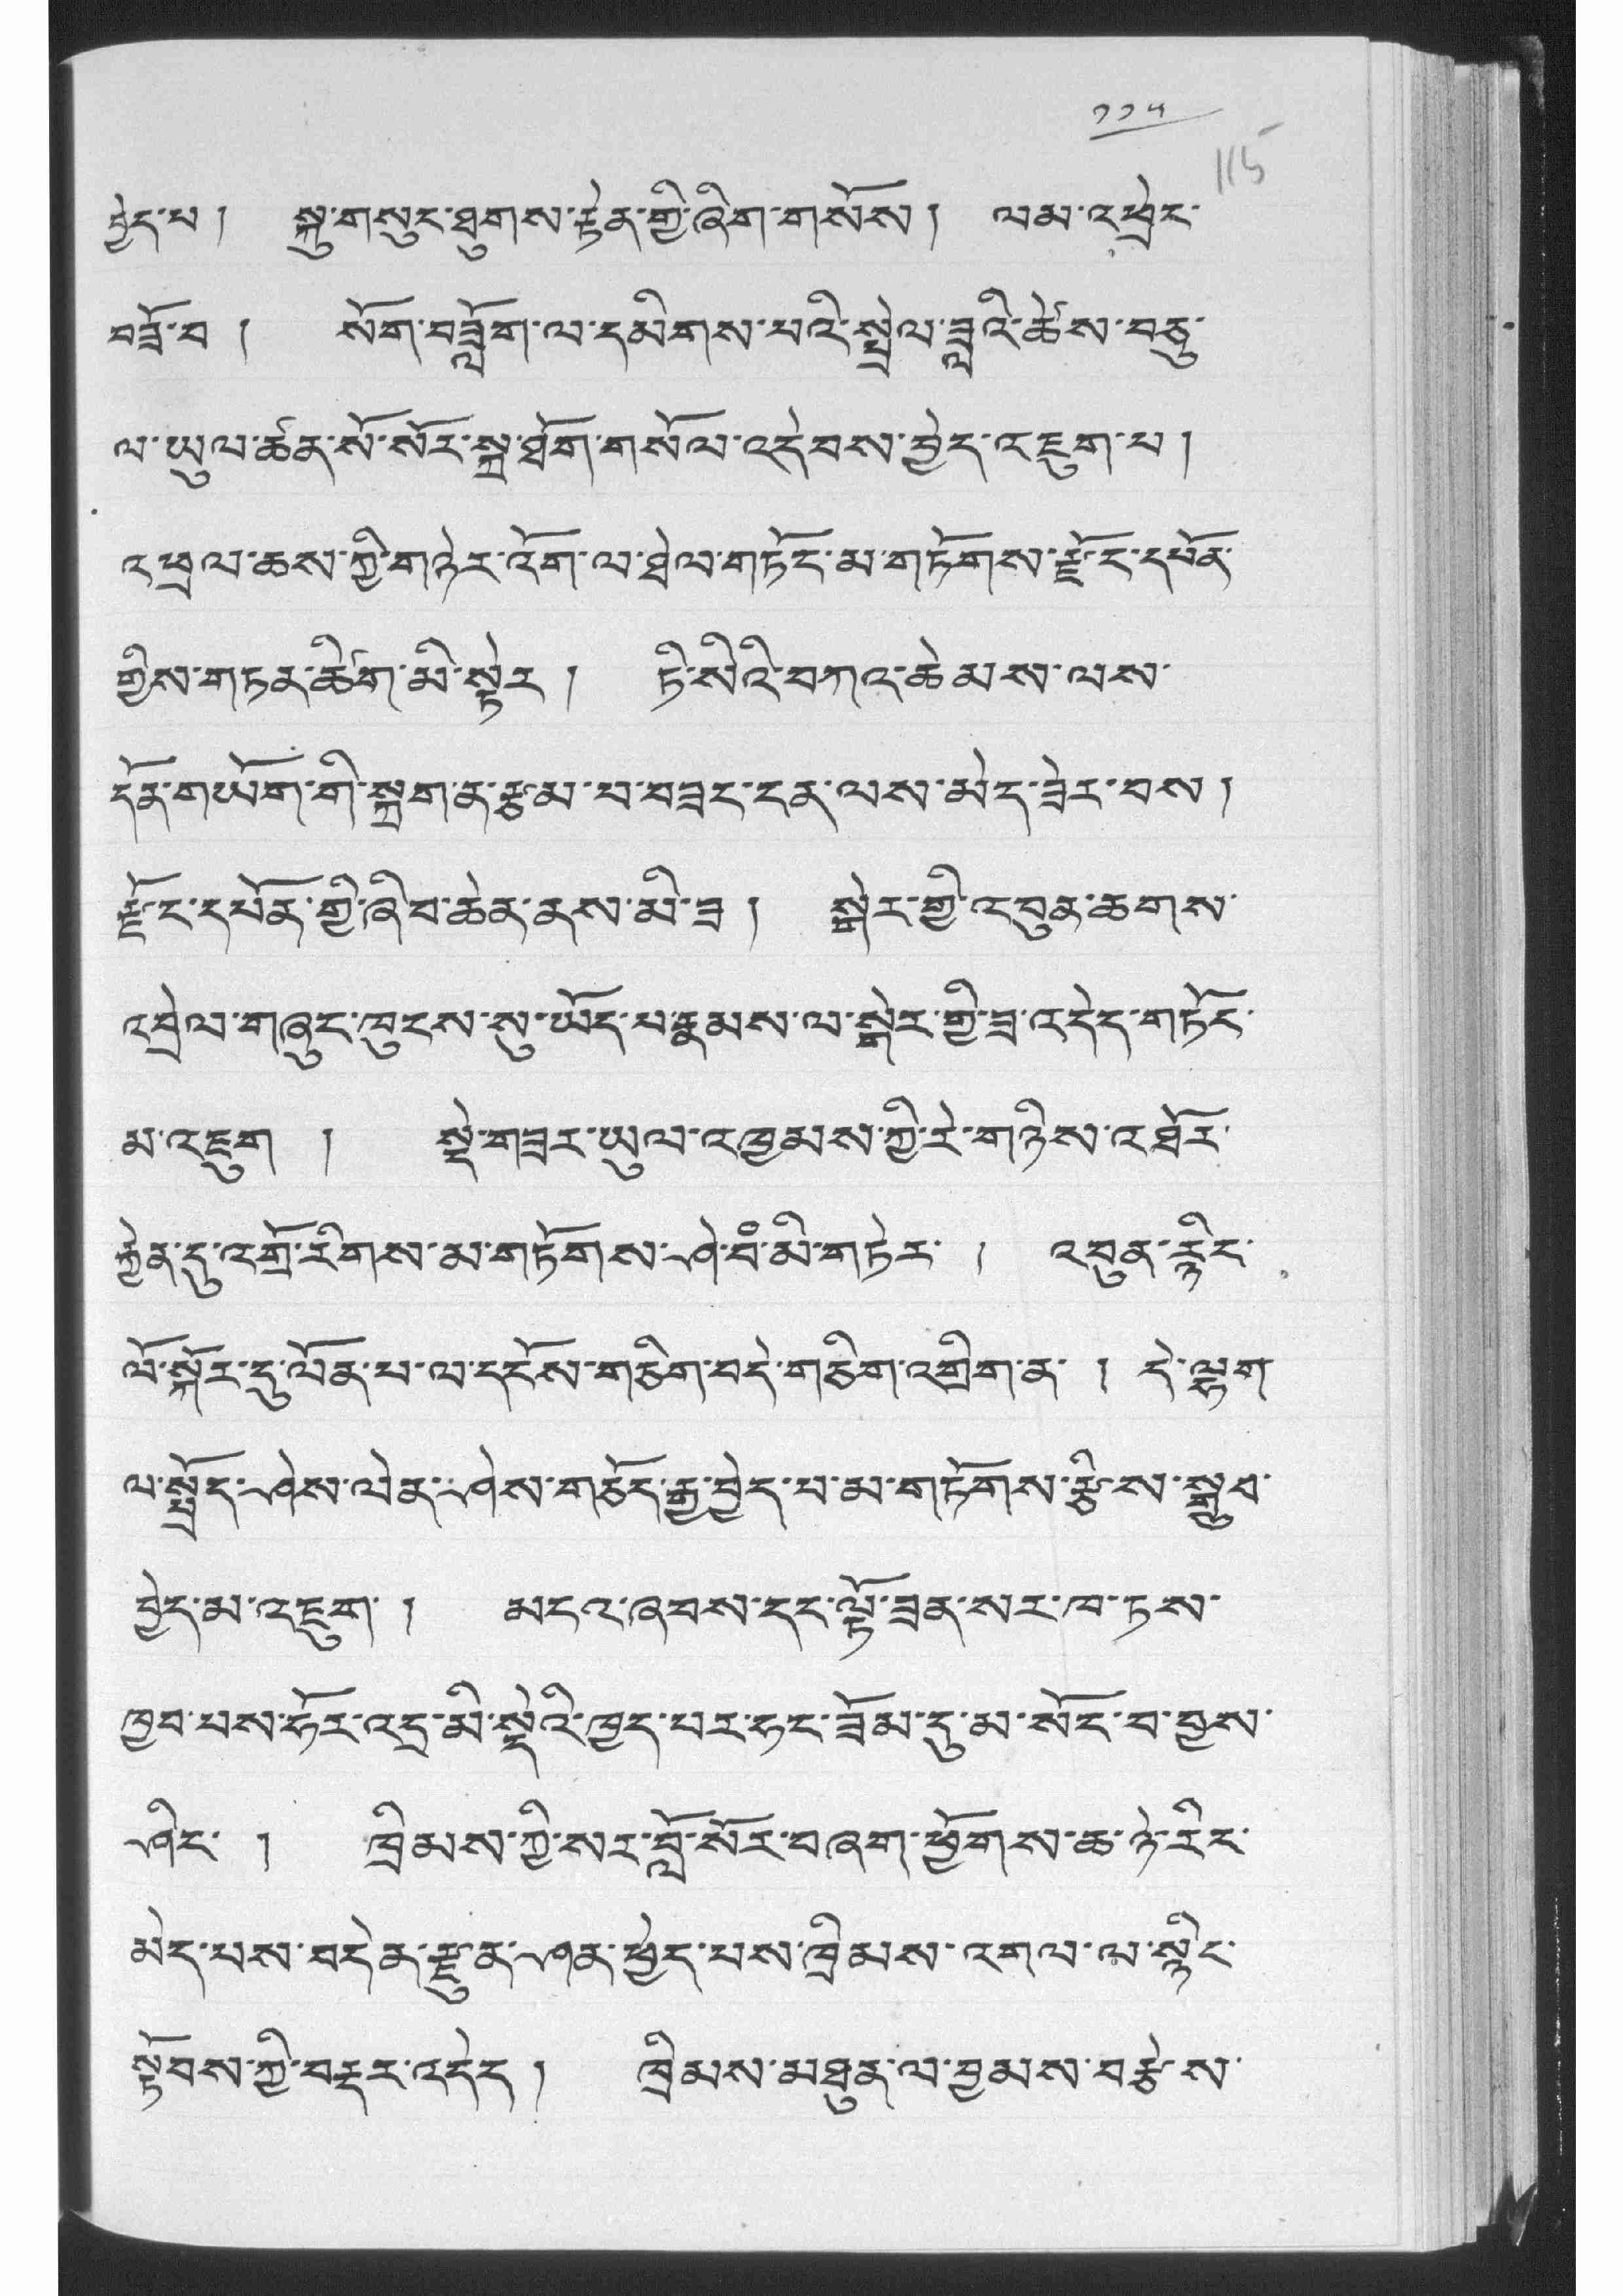 ༡༡༥
115
བྱེད་པ། སྐུ་གསུང་ཐུགས་རྟེན་གྱི་ཞིག་གསོས། ལམ་འཕྲེང་
བཟོ་བ། སོག་བཟློག་ལ་དམིགས་པའི་སྤྲེལ་ཟླའི་ཚེས་བཅུ་
ལ་ཡུལ་ཚན་སོ་སོར་སྐྲ་ཐོག་གསོལ་འདེབས་བྱེད་འཇུག་པ།
འཕྲལ་ཆས་ཀྱི་གཉེར་འོག་ལ་ཐེལ་གཏོང་མ་གཏོགས་རྫོང་དཔོན་
གྱིས་གཏན་ཚིག་མི་སྟེར། ཏི་སིའི་བཀའ་ཆེམས་ལས་
དོན་གཡོག་གི་སྐྲག་ན་རྩམ་པ་བཟང་ངན་ལས་མེད་ཟེར་བས།
རྫོང་དཔོན་གྱི་ཞིབ་ཆེན་ནས་མི་ཟ། སྒེར་གྱི་འབུན་ཆགས་
འབྲེལ་གཞུང་ཁུངས་སུ་ཡོད་པ་རྣམས་ལ་སྒེར་གྱི་ཟ་འདེད་གཏོང་
མ་འཇུག ། སྡེ་གཟར་ཡུལ་འཁྱམས་ཀྱི་རེ་གཉིས་འཐོར་
རྐྱེན་དུ་འགྲོ་རིགས་མ་གཏོགས་ཤེ་བཾ་མི་གཏེར་ ། འབུན་རྙིང་
ལོ་སྐོར་དུ་ལོན་པ་ལ་དངོས་གཅིག་བདེ་གཅིག་འགྲིག་ན་ ། དེ་ལྷག
ལ་སྤྲོད་ཤེས་ལེན་ཤེས་གཅོད་རྒྱ་བྱེད་པ་མ་གཏོགས་རྩིས་སྒྲུབ་
བྱེད་མ་འཇུག་ ། མངའ་ཞབས་དང་ལྟོ་ཟན་སར་ཁ་ཏས་
ཁྱབ་པས་ཧོར་འདྲ་མི་སྡེའི་ཁྱད་པར་ཧང་ཟོམ་དུ་མ་སོང་བ་བྱས་
ཤིང་ ། ཁྲིམས་ཀྱི་སར་བློ་སོར་བཞག་ཕྱོགས་ཆ་ཉེ་རིང་
མེད་པས་བདེན་རྫུན་ཤན་ཕྱེད་པས་ཁྲིམས་འགལ་ལ་སྙིང་
སྟོབས་ཀྱི་བརྡར་འདེད། ཁྲིམས་མཐུན་ལ་བྱམས་བརྩེས་